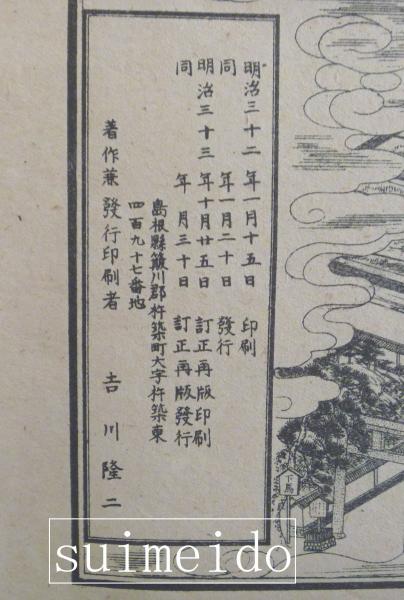 明治三十二年一月十五日印刷
同年一月二十日發行
明治三十三年十月廿五日訂正再版印刷
同年月三十日訂正再版發行
島根縣簸川郡杵築町大字杵築東
四百九十七番地
著作兼發行印刷者 吉川隆二
下馬
suimeido